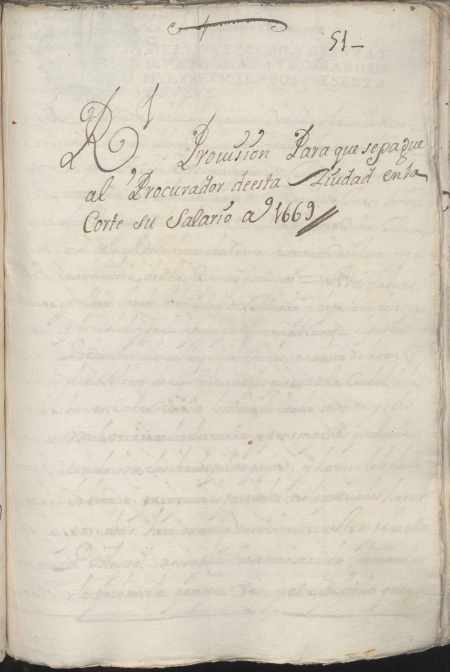 51-
Rl Provission Para que se pague
al Procurador de esta Ciudad en la
Corte su Salario aº 1669